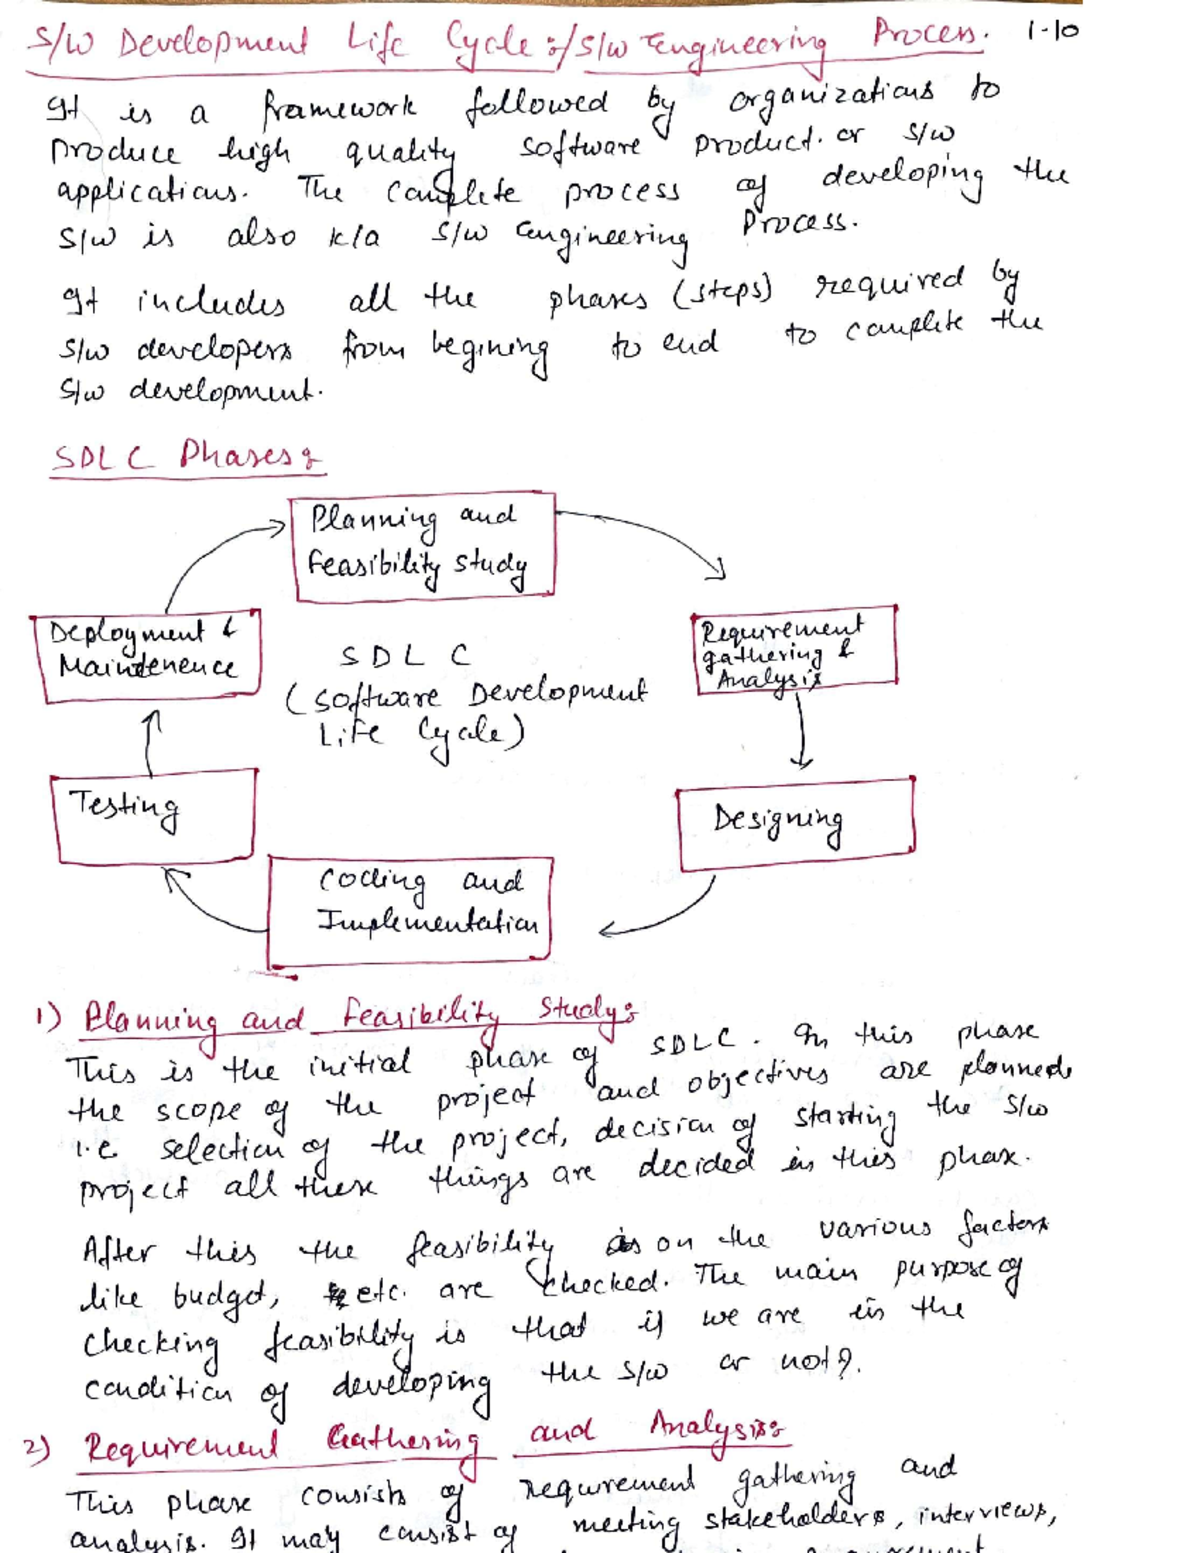 S/W Development Life Cycle :/ S/W Engineering Process. 1-10
It is a framework followed by organizations to
produce high quality software product. or S/W
applications. The complete process of developing the
S/W is also k/a S/W Engineering Process.
It includes all the phases (steps) required by
S/W developers from begining to end to complete the
S/W development.
SDLC Phases :
Planning and
Feasibility Study
Deployment &
Maintenence
SDLC
(Software Development
Life Cycle)
Requirement
gathering &
Analysis
Testing
Designing
Coding and
Implementation
1) Planning and Feasibility Study :
This is the initial phase of SDLC. In this phase
the scope of the project and objectives are planned
i.e selection of the project, decision of starting the S/W
project all these things are decided in this phase.
After this the feasibility on the various factors
like budget, etc. are checked. The main purpose of
checking feasibility is that if we are in the
condition of developing the S/W or not?.
2) Requirement Gathering and Analysis :
This phase consists of requirement gathering and
analysis. It may consist of meeting stakeholders, interviews,